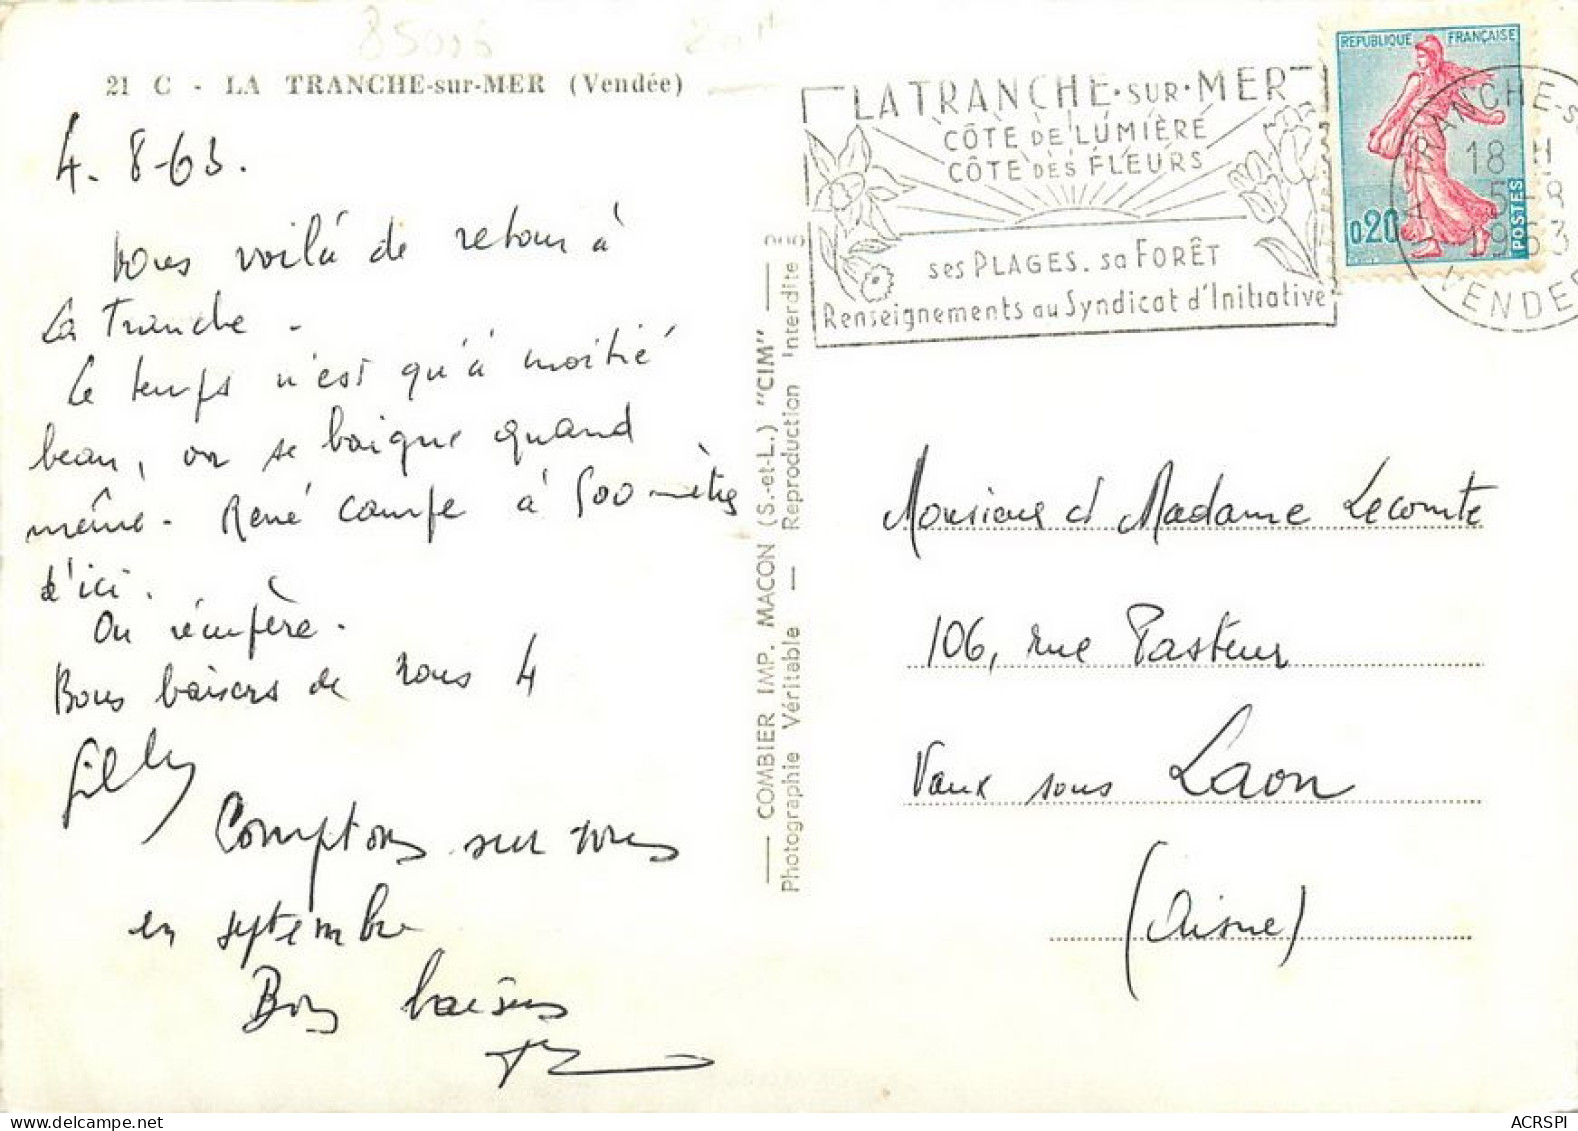 85036
21 C - LA TRANCHE-sur-MER (Vendée)
4. 8-63.
Nous voilà de retour à
La Tranche.
Le temps n'est qu'à moitié
beau, on se baigne quand
même. René campe à 500 mètres
d'ici.
On récupère.
Bons baisers de nous 4
Gilly
Comptons sur vous
en septembre
Bons baisers
COMBIER IMP. MACON (S.-et-L.) "CIM"
Photographie Véritable — Reproduction Interdite
LA TRANCHE·SUR·MER
CÔTE DE LUMIÈRE
CÔTE DES FLEURS
ses PLAGES. sa FORÊT
Renseignements au Syndicat d'Initiative
REPUBLIQUE FRANÇAISE
0,20
POSTES
LA TRANCHE-S
18 H
5-8
1963
VENDEE
Monsieur et Madame Lecomte
106, rue Pasteur
Vaux sous Laon
(Aisne)
ACRSPI